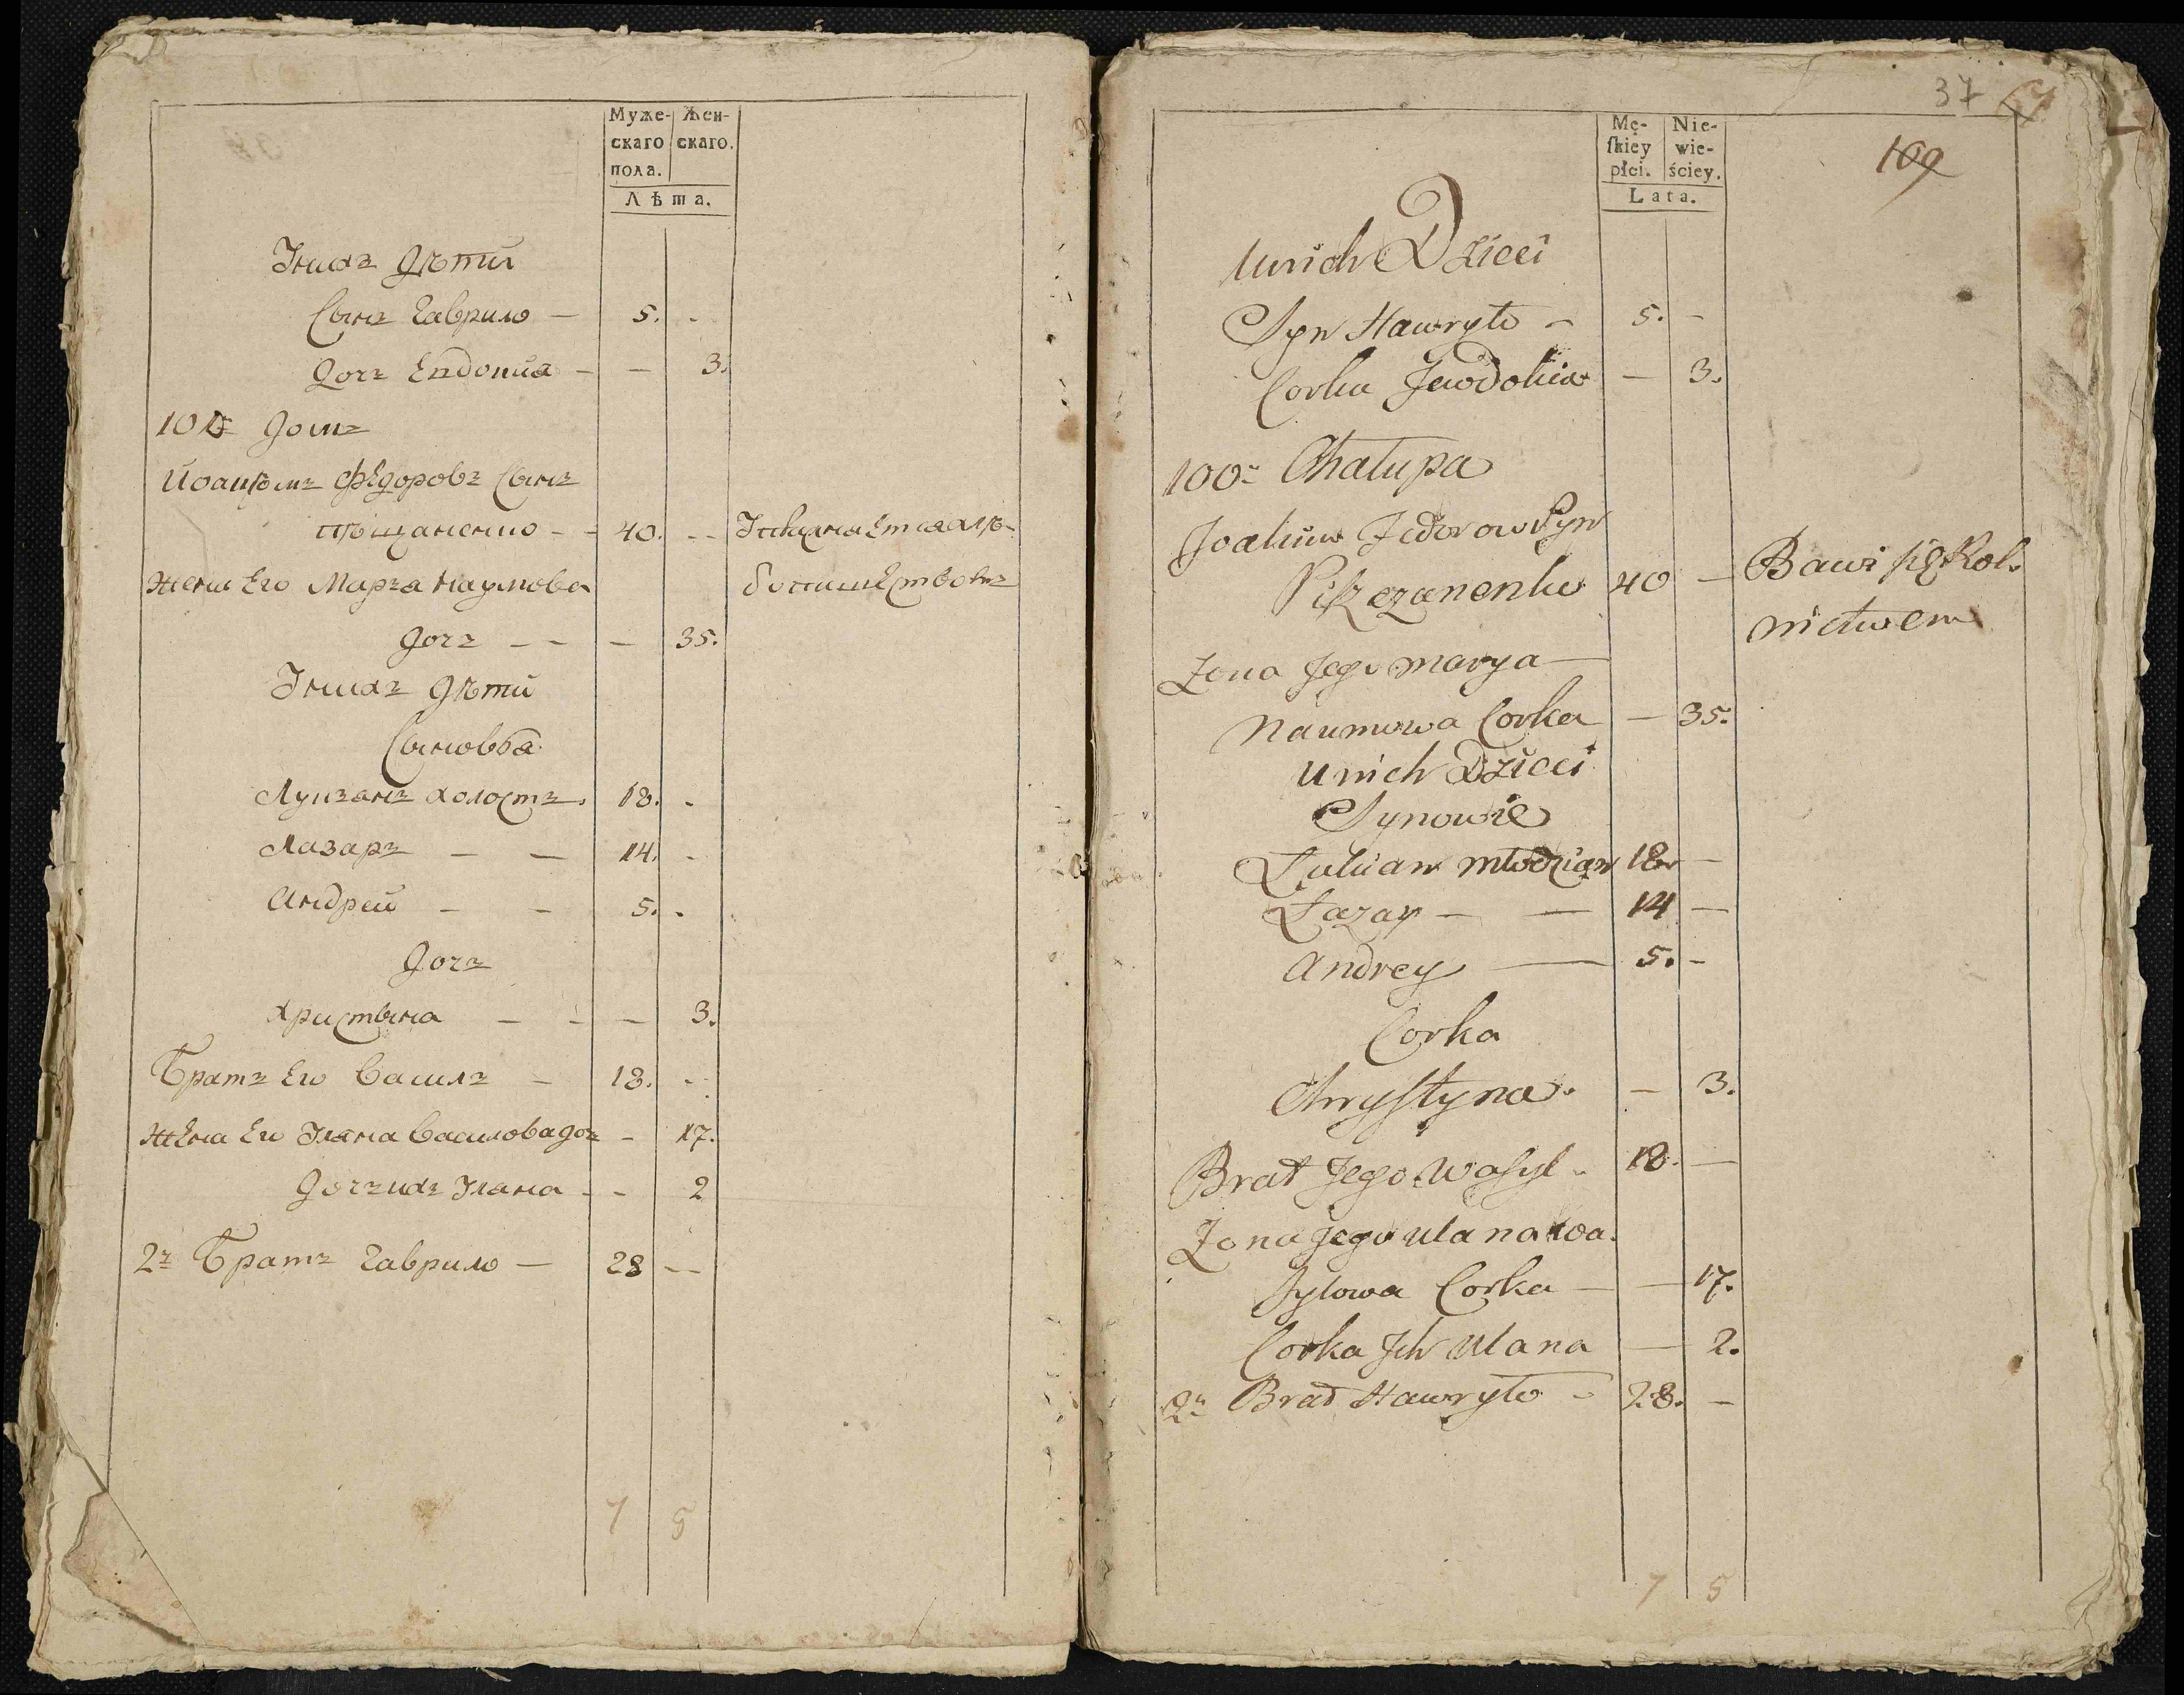 Муже-
скаго
пола.
Жен-
скаго.
Лѣта.
Унихъ дѣти
Сынъ Гаврило — 5. -
Дочъ Евдокиа — — 3.
100 домъ
Иоакимъ Федоровъ Сынъ
пѣщаненко - - 40. - -
Жена Его Маръа Наумова
дочъ - - — 35.
Унихъ дѣти
Сыновъа
Лукъанъ холостъ. 18. -
Лазаръ — — 14. -
Андрей — — 5. -
дочъ
Христына — - — 3.
Братъ Его Василъ — 18. -
Жена Его Улана Василова дочъ - 17.
Дочъ ихъ Улана - - 2
2ъ Братъ Гаврило — 28 - -
7 5
37
109
Mę-
ſkiey
płci.
Nie-
wie-
ściey.
Lata.
U nich Dzieci
Syn Hawryło - 5. -
Corka Jewdokia — 3.
100- Chałupa
Joakim Fedorow Syn
40 — Bawi się Rol-
nictwem
Zona Jego Marya —
Naumowa Corka — 35.
U nich Dzieci
Synowie
Łukian młodzian 18 —
Łazar — — 14 —
Andrey — 5. -
Corka
Chrystyna. — 3.
Brat Jego Wasyl - 18. —
Zona Jego Ulana Wa-
sylowa Corka — — 17.
Corka Ich Ulana — 2.
2- Brat Hawryło - 28. -
7 5